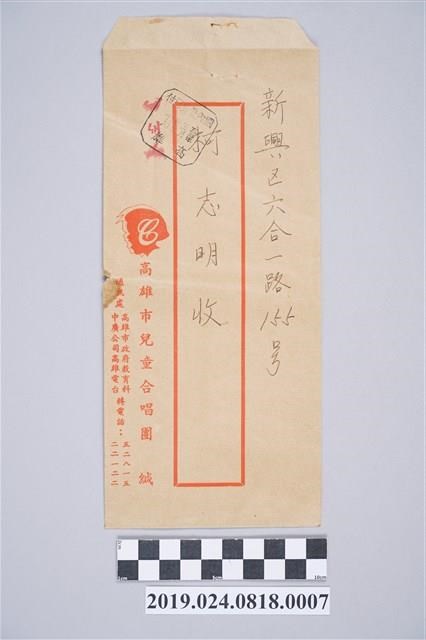 新興区六合一路155号
柯志明收
高雄市兒童合唱團 緘
通訊處
高雄市政府教育科
中廣公司高雄電台
轉電話：
五二八一五
二二一二二
C
1cm 5cm 10cm
2019.024.0818.0007